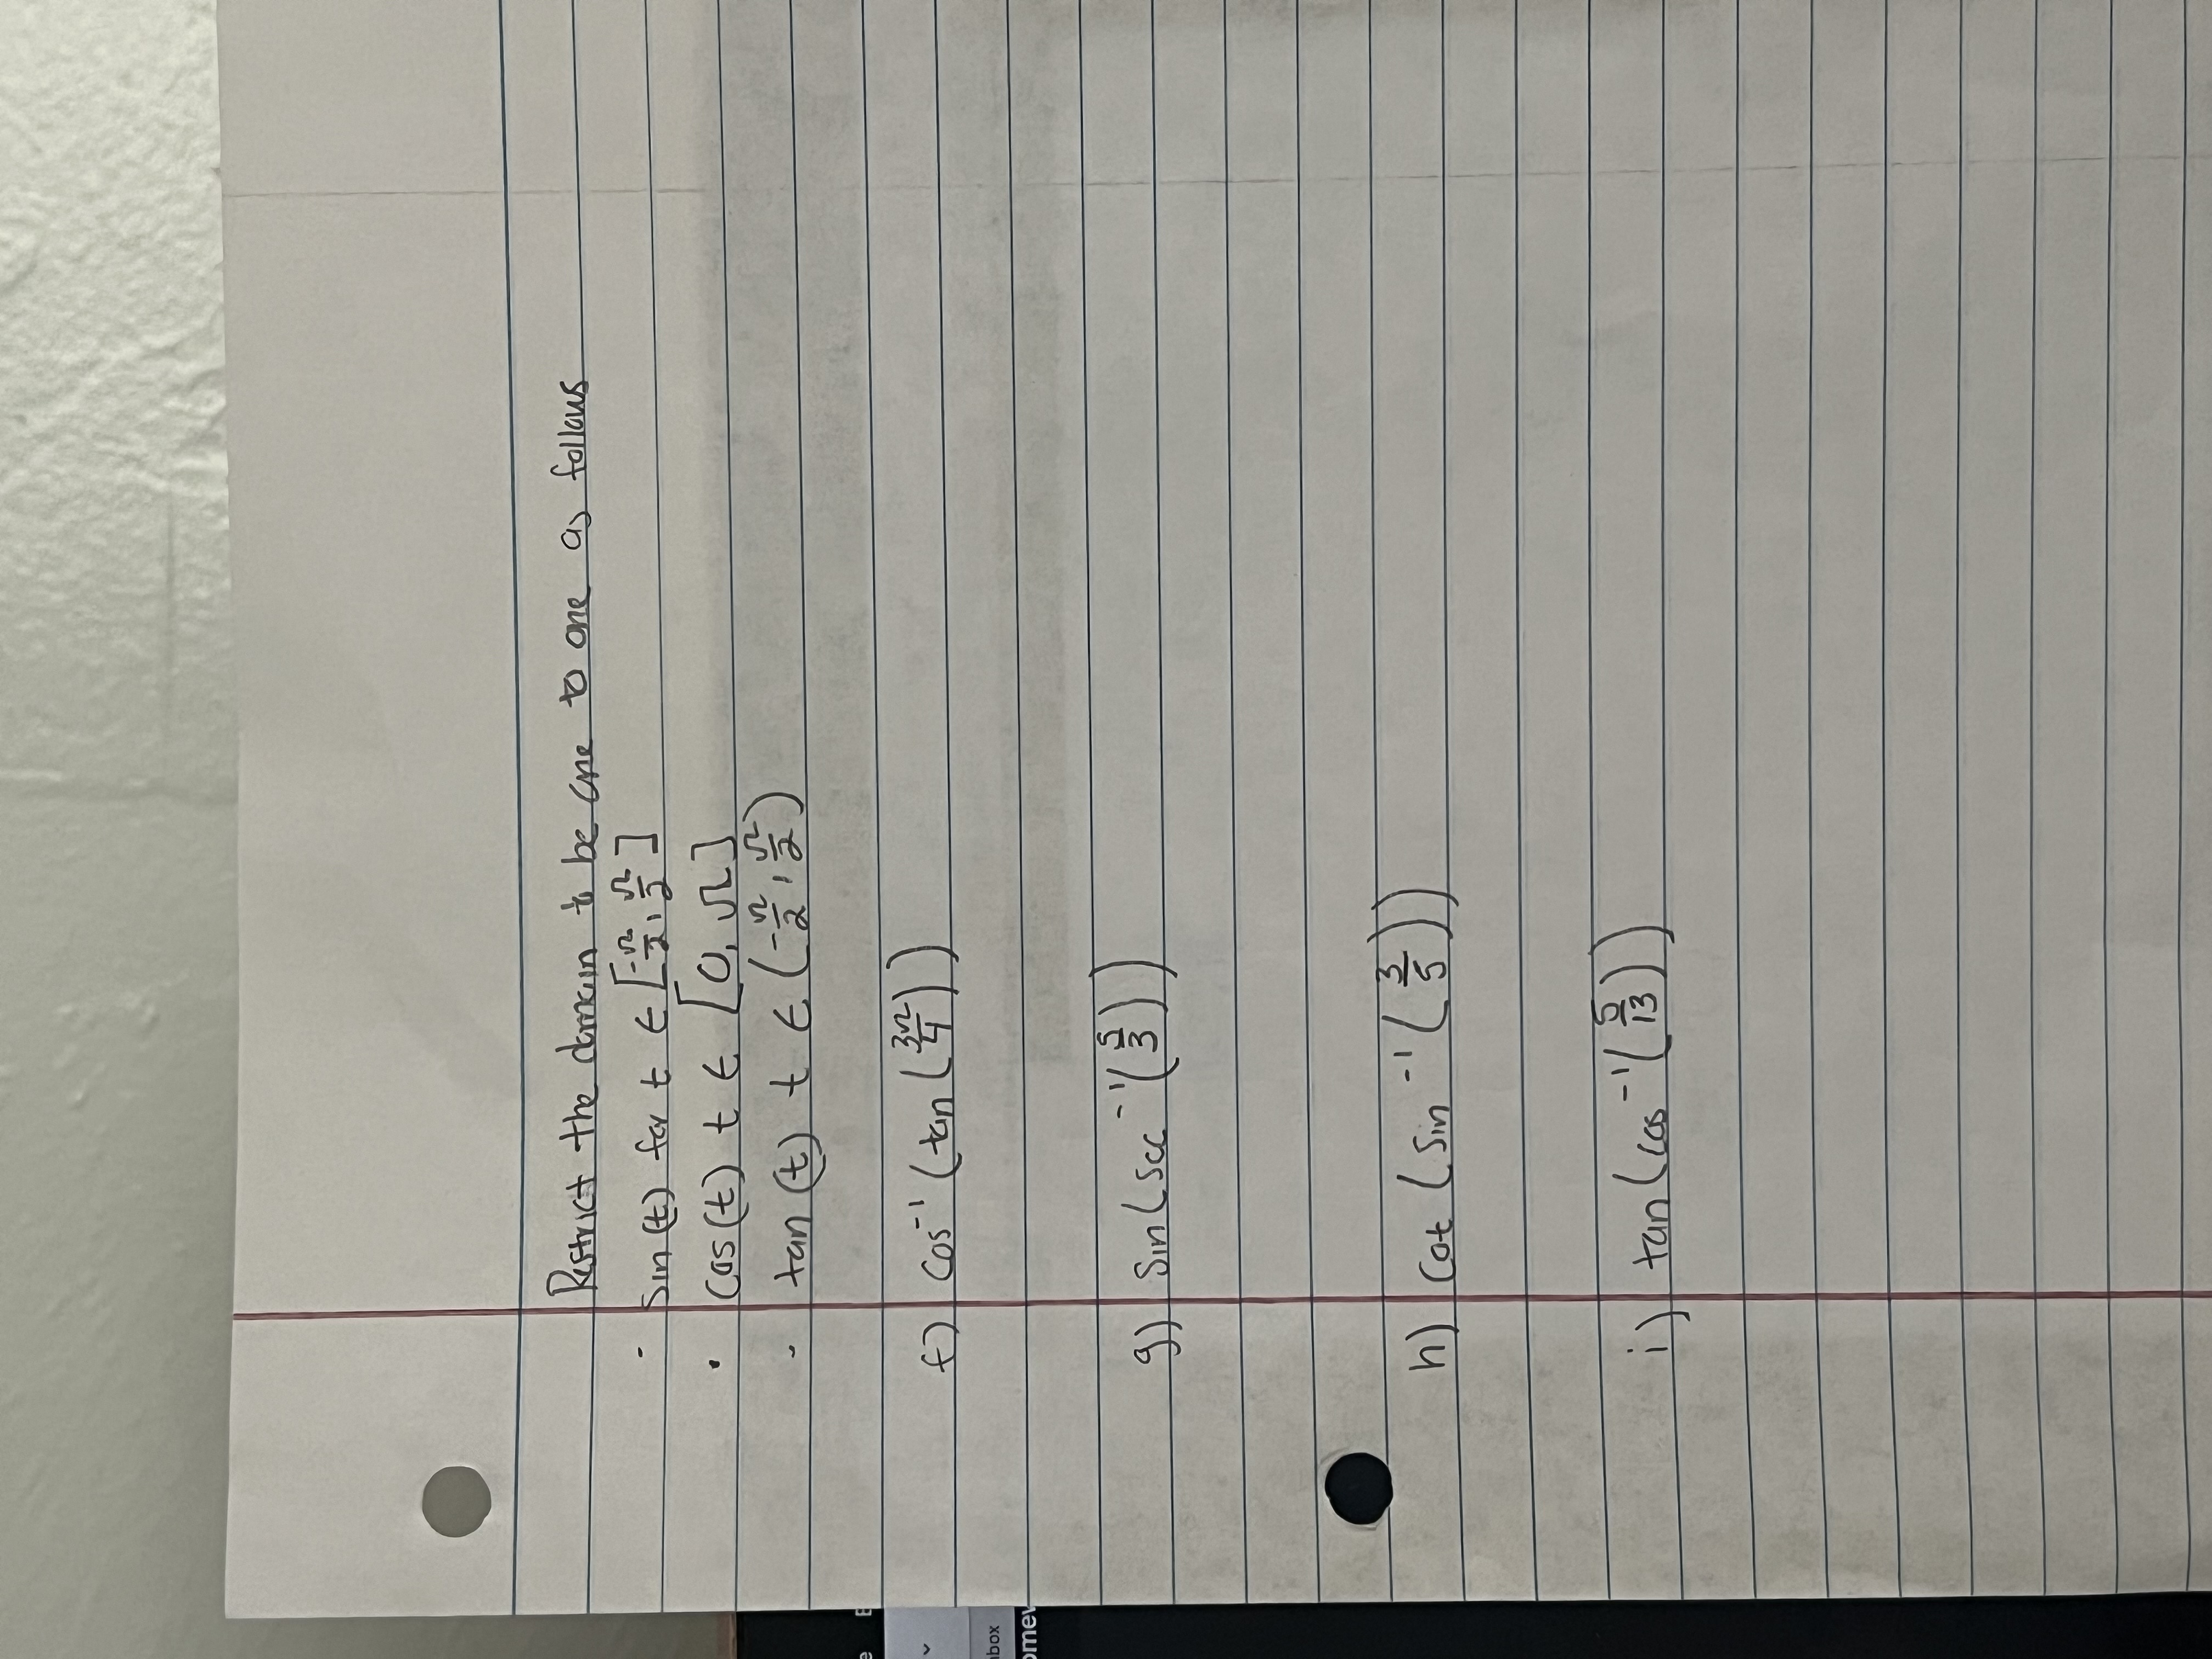 Restrict the domain to be one to one as follows
· Sin(t) for t ∈ [-π/2, π/2]
· Cos(t) t ∈ [0, π]
· tan(t) t ∈ (-π/2, π/2)
f) cos⁻¹(tan(3π/4))
g) Sin(sec⁻¹(5/3))
h) Cot(Sin⁻¹(3/5))
i) tan(cos⁻¹(5/13))
box